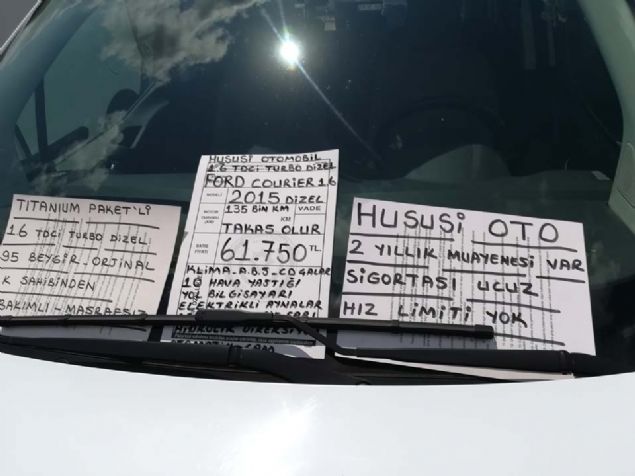 TITANIUM PAKET'Li
1.6 TDCİ TURBO DİZEL
95 BEYGİR ORJİNAL
K SAHİBİNDEN
BAKIMLI - MASRAFSIZ
HUSUSİ OTOMOBİL
1.6 TDCİ TURBO DİZEL
FORD COURİER 1.6
2015 DİZEL
135 BİN KM VADE
TAKAS OLUR
61.750 TL
KLİMA - A.B.S - CD ÇALAR
HAVA YASTIĞI
YOL BİLGİSAYARI
ELEKTRİKLİ AYNALAR
HİDROLİK DİREKSİY
HUSUSİ OTO
2 YILLIK MUAYENESİ VAR
SİGORTASI UCUZ
HIZ LİMİTİ YOK